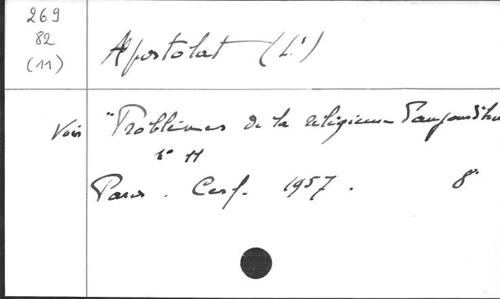 269
82
(11)
Apostolat (L')
Voir "Problèmes de la religieuse d'aujourd'hu
n° 11
Paris. Cerf. 1957. 8°